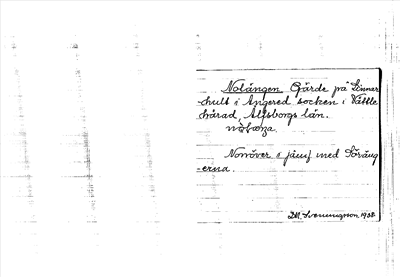 Nolängen Gärde på Linnar-
-hult i Angered socken i Vättle
härad, Älfsborgs län.
Norröver i jämj med Söräng-
-erna.
D.M. Svenningson 1938.